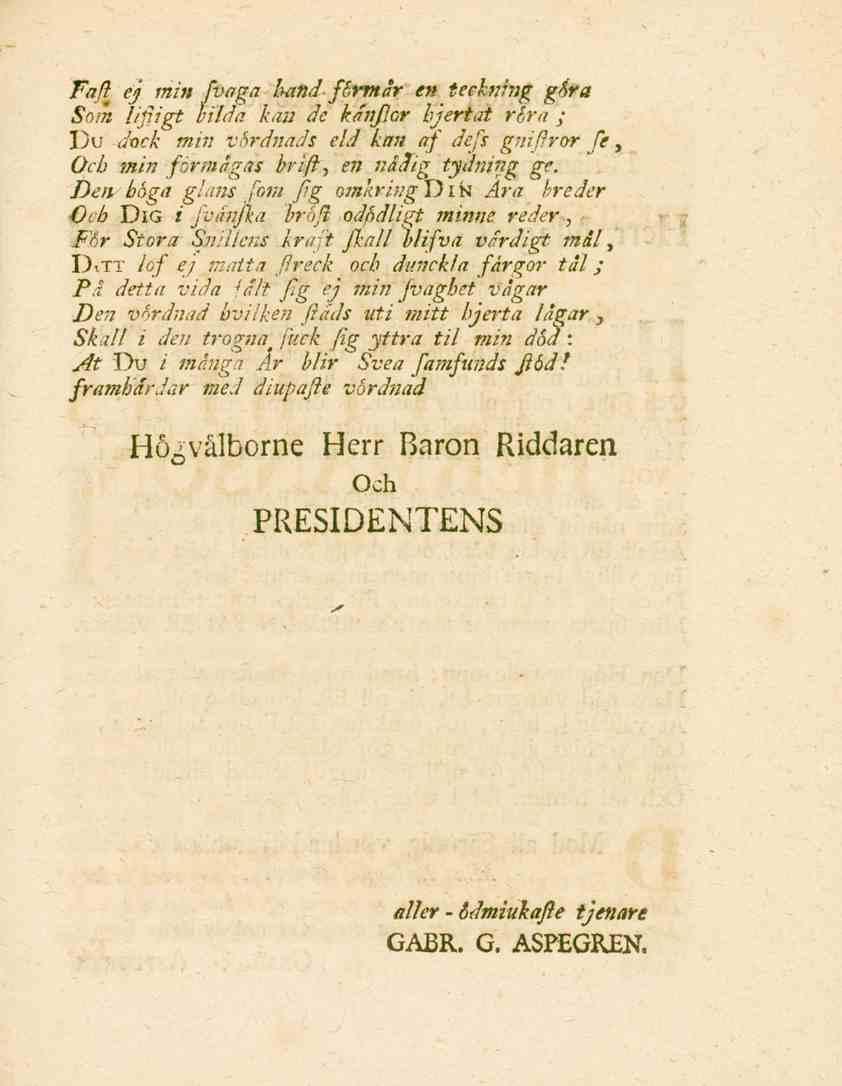 Faſt ej min ſvaga hand förmår en teckning göra
Som lifligt bilda kan de känſlor hjertat röra ;
DU dock min vördnads eld kan af deſs gniſtror ſe ,
Och min förmågas briſt , en nådig tydning ge.
Den höga glans ſom ſig omkring DIN Ära breder
Och DIG i ſvänſka bröſt odödligt minne reder ,
För Stora Snillens kraft ſkall blifva värdigt mål ,
DITT lof ej matta ſtreck och dunckla färgor tål ;
På detta vida fält ſig ej min ſvaghet vågar
Den vördnad hvilken ſtäds uti mitt hjerta lågar ,
Skall i den trogna ſuck ſig yttra til min död :
At DU i många År blir Svea ſamfunds ſtöd !
framhärdar med diupaſte vördnad
Högvälborne Herr Baron Riddaren
Och
PRESIDENTENS
aller - ödmiukaſte tjenare
GABR. G. ASPEGREN.